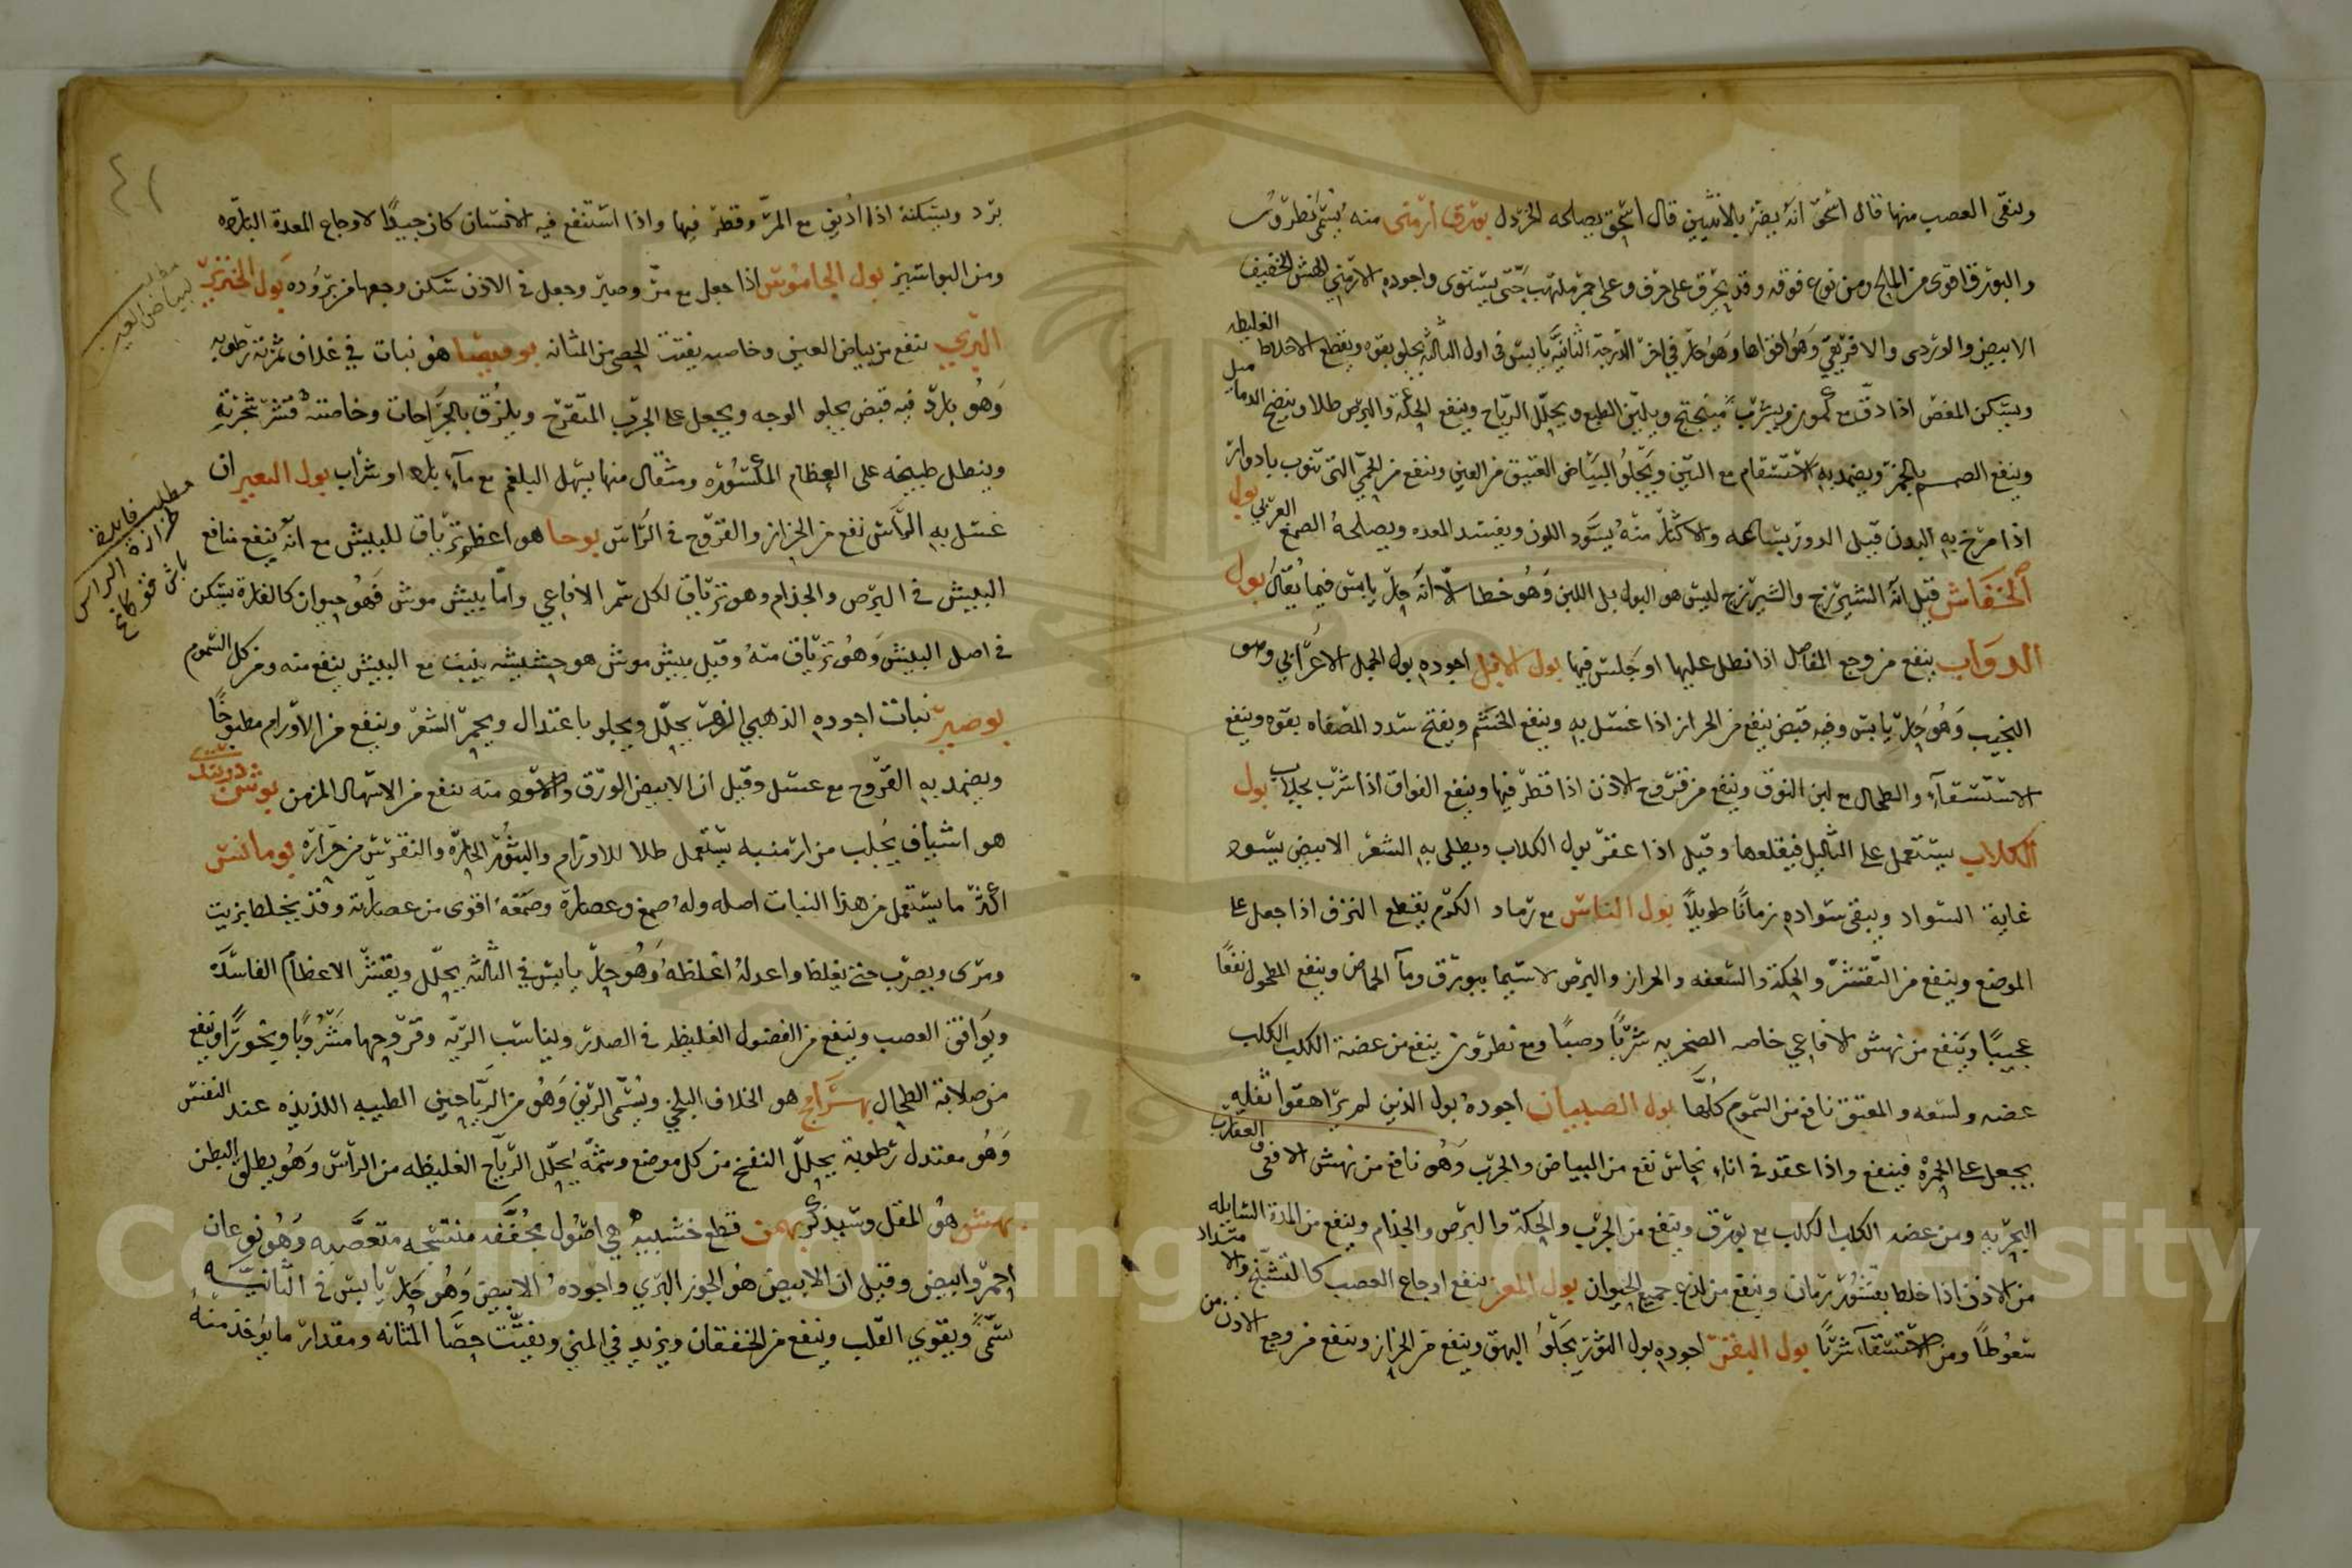 وينقى العصب منها قال اسحق انه يضر بالانثيين قال اسحق يصلحه الخردل بورق ارمنى منه يسمى نطرون
والبورق اقوى من الملح ومن نوع فوقه وقد يحرق على خزف وعلى جمر ملتهب حتى يستوى واجوده الارمنى الهش الخفيف
الابيض والوردى والافريقي وهو اقواها وهو حار في اخر الدرجة الثانية يابس في اول الثالثة يجلو بقوه ويقطع الاخلاط الغليظه
ويسكن المغص اذا دق مع كمون ويشرب بميبختج ويلين الطبع ويحلل الرياح وينفع الحكة والبرص طلا وينضج الدماميل
وينفع الصمم بالخمر ويضمد به الاستسقاء مع التين ويجلو البياض العتيق من العين وينفع من الحمى التى تنوب بادوار
اذا مرخ به البدن قبل الدور بساعه والاكثار منه يسود اللون ويفسد المعده ويصلحه الصمغ العربي بول
الخفاش قيل انه الشيرزج والشيرزج ليس هو البول بل اللبن وهو خطا الا انه حار يابس فيما يقال بول
الدواب ينفع من وجع المفاصل اذا نطل عليها او جلس فيها بول الابل اجوده بول الجمل الاعرابي وهو
النجيب وهو حار يابس وفيه قبض ينفع من الحزاز اذا غسل به وينفع الخشم ويفتح سدد المصفاه بقوه وينفع
الاستسقآء والطحال مع لبن النوق وينفع من قروح الاذن اذا قطر فيها وينفع الفواق اذا شرب بجلاب بول
الكلاب يستعمل على الثآليل فيقلعها وقيل اذا عفن بول الكلاب ويطلى به الشعر الابيض يسود
غاية السواد ويبقى سواده زمانا طويلا بول الناس مع رماد الكرم يقطع النزف اذا جعل على
الموضع وينفع من التقشر والحكة والسعفه والحزاز والبرص لاسيما ببورق ومآ الحماض وينفع المطحول نفعا
عجيبا وينفع من نهش الافاعي خاصه الصخريه شربا وصبا ومع نطرون ينفع من عضة الكلب الكلب
عضه ولسعه والمعتق نافع من السموم كلها بول الصبيان اجوده بول الذين لم يراهقوا ثفله
يجعل على الحمرة فينفع واذا عقد في اناء نحاس نفع من البياض والجرب وهو نافع من نهش الافعى والعقارب
البحريه ومن عضه الكلب الكلب مع بورق وينفع من الجرب والحكة والبرص والجذام وينفع من المدة السايله
من الاذن اذا خلط بقشور رمان وينفع من لذع جميع الحيوان بول المعز ينفع اوجاع العصب كالتشنج والامتداد
سعوطا ومن الاستسقآء شربا بول البقر اجوده بول الثور يجلو البهق وينفع من الحزاز وينفع من وجع الاذن من
برد ويسكنه اذا اذيف مع المر وقطر فيها واذا استنقع فيه الانسان كان جيدا لاوجاع المعدة الباردة
ومن البواسير بول الجاموس اذا جعل مع مر وصبر وجعل في الاذن سكن وجعها من بروده بول الخنزير
البري ينفع من بياض العين وخاصيه يفتت الحصى من المثانه بوقيصا هو نبات في غلاف ثمرته رطوبه
وهو بارد فيه قبض يجلو الوجه ويجعل على الجرب المتقرح ويلزق بالجراحات وخاصته قشر شجرته
وينطل طبيخه على العظام المكسوره ومثقال منها يسهل البلغم مع مآء بارد او شراب بول البعير ان
غسل به الرأس نفع من الحزاز والقروح في الرأس بوحا هو اعظم ترياق للبيش مع انه ينفع منافع
البيش في البرص والجذام وهو ترياق لكل سم الافاعي واما بيش موش فهو حيوان كالفارة يسكن
في اصل البيش وهو ترياق منه وقيل بيش موش هو حشيشه ينبت مع البيش ينفع منه ومن كل السموم
بوصير نبات اجوده الذهبي الزهر يحلل ويجلو باعتدال ويحمر الشعر وينفع من الاورام مطبوخا
ويضمد به القروح مع عسل وقيل ان الابيض الورق والاسود منه ينفع من الاسهال المزمن بوش دربندى
هو اشياف يجلب من ارمنيه يستعمل طلا للاورام والبثور الحارة والنقرس من حرارة بومانس
اكثر ما يستعمل من هذا النبات اصله وله صمغ وعصارة وصمغه اقوى من عصارته وقد يخلط بزيت
ومرى ويصرب حتى يغلظ واعدله اغلظه وهو حار يابس في الثالثه يحلل ويقشر الاعظام الفاسدة
ويوافق العصب وينفع من الفضول الغليظه في الصدر ويناسب الريه وقروحها مشروبا وبخورا وينفع
من صلابة الطحال بهرامج هو الخلاف البلخي ويسمى الرنف وهو من الرياحين الطيبه اللذيذه عند النفس
وهو معتدل رطوبة يحلل النفخ من كل موضع وشمه يحلل الرياح الغليظه من الراس وهو يطلق البطن
بهش هو المقل وسيذكر بهمن قطع خشبيه هي اصول مجففه متشنجه متغضنه وهو نوعان
احمر وابيض وقيل ان الابيض هو الجزر البري واجوده الابيض وهو حار يابس في الثانيه
يسمن ويقوي القلب وينفع من الخفقان ويزيد في المني ويفتت حصا المثانه ومقدار ما يوخذ منه
٤١
مطلب
لبياض العين
مطلب فايدة
الراس